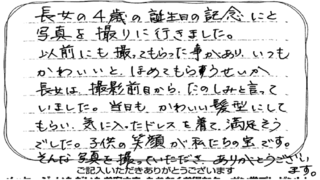 長女の4歳の誕生日の記念にと
写真を撮りに行きました。
以前にも撮ってもらった事があり、いつも
かわいいと、ほめてもらうせいか
長女は、撮影前日から、たのしみと言って
いました。当日も、かわいい髪型にして
もらい、気に入ったドレスを着て、満足そう
でした。子供の笑顔が私たちの宝です。
そんな写真を撮っていただき、ありがとうござい
ます。
ご記入いただきありがとうございます